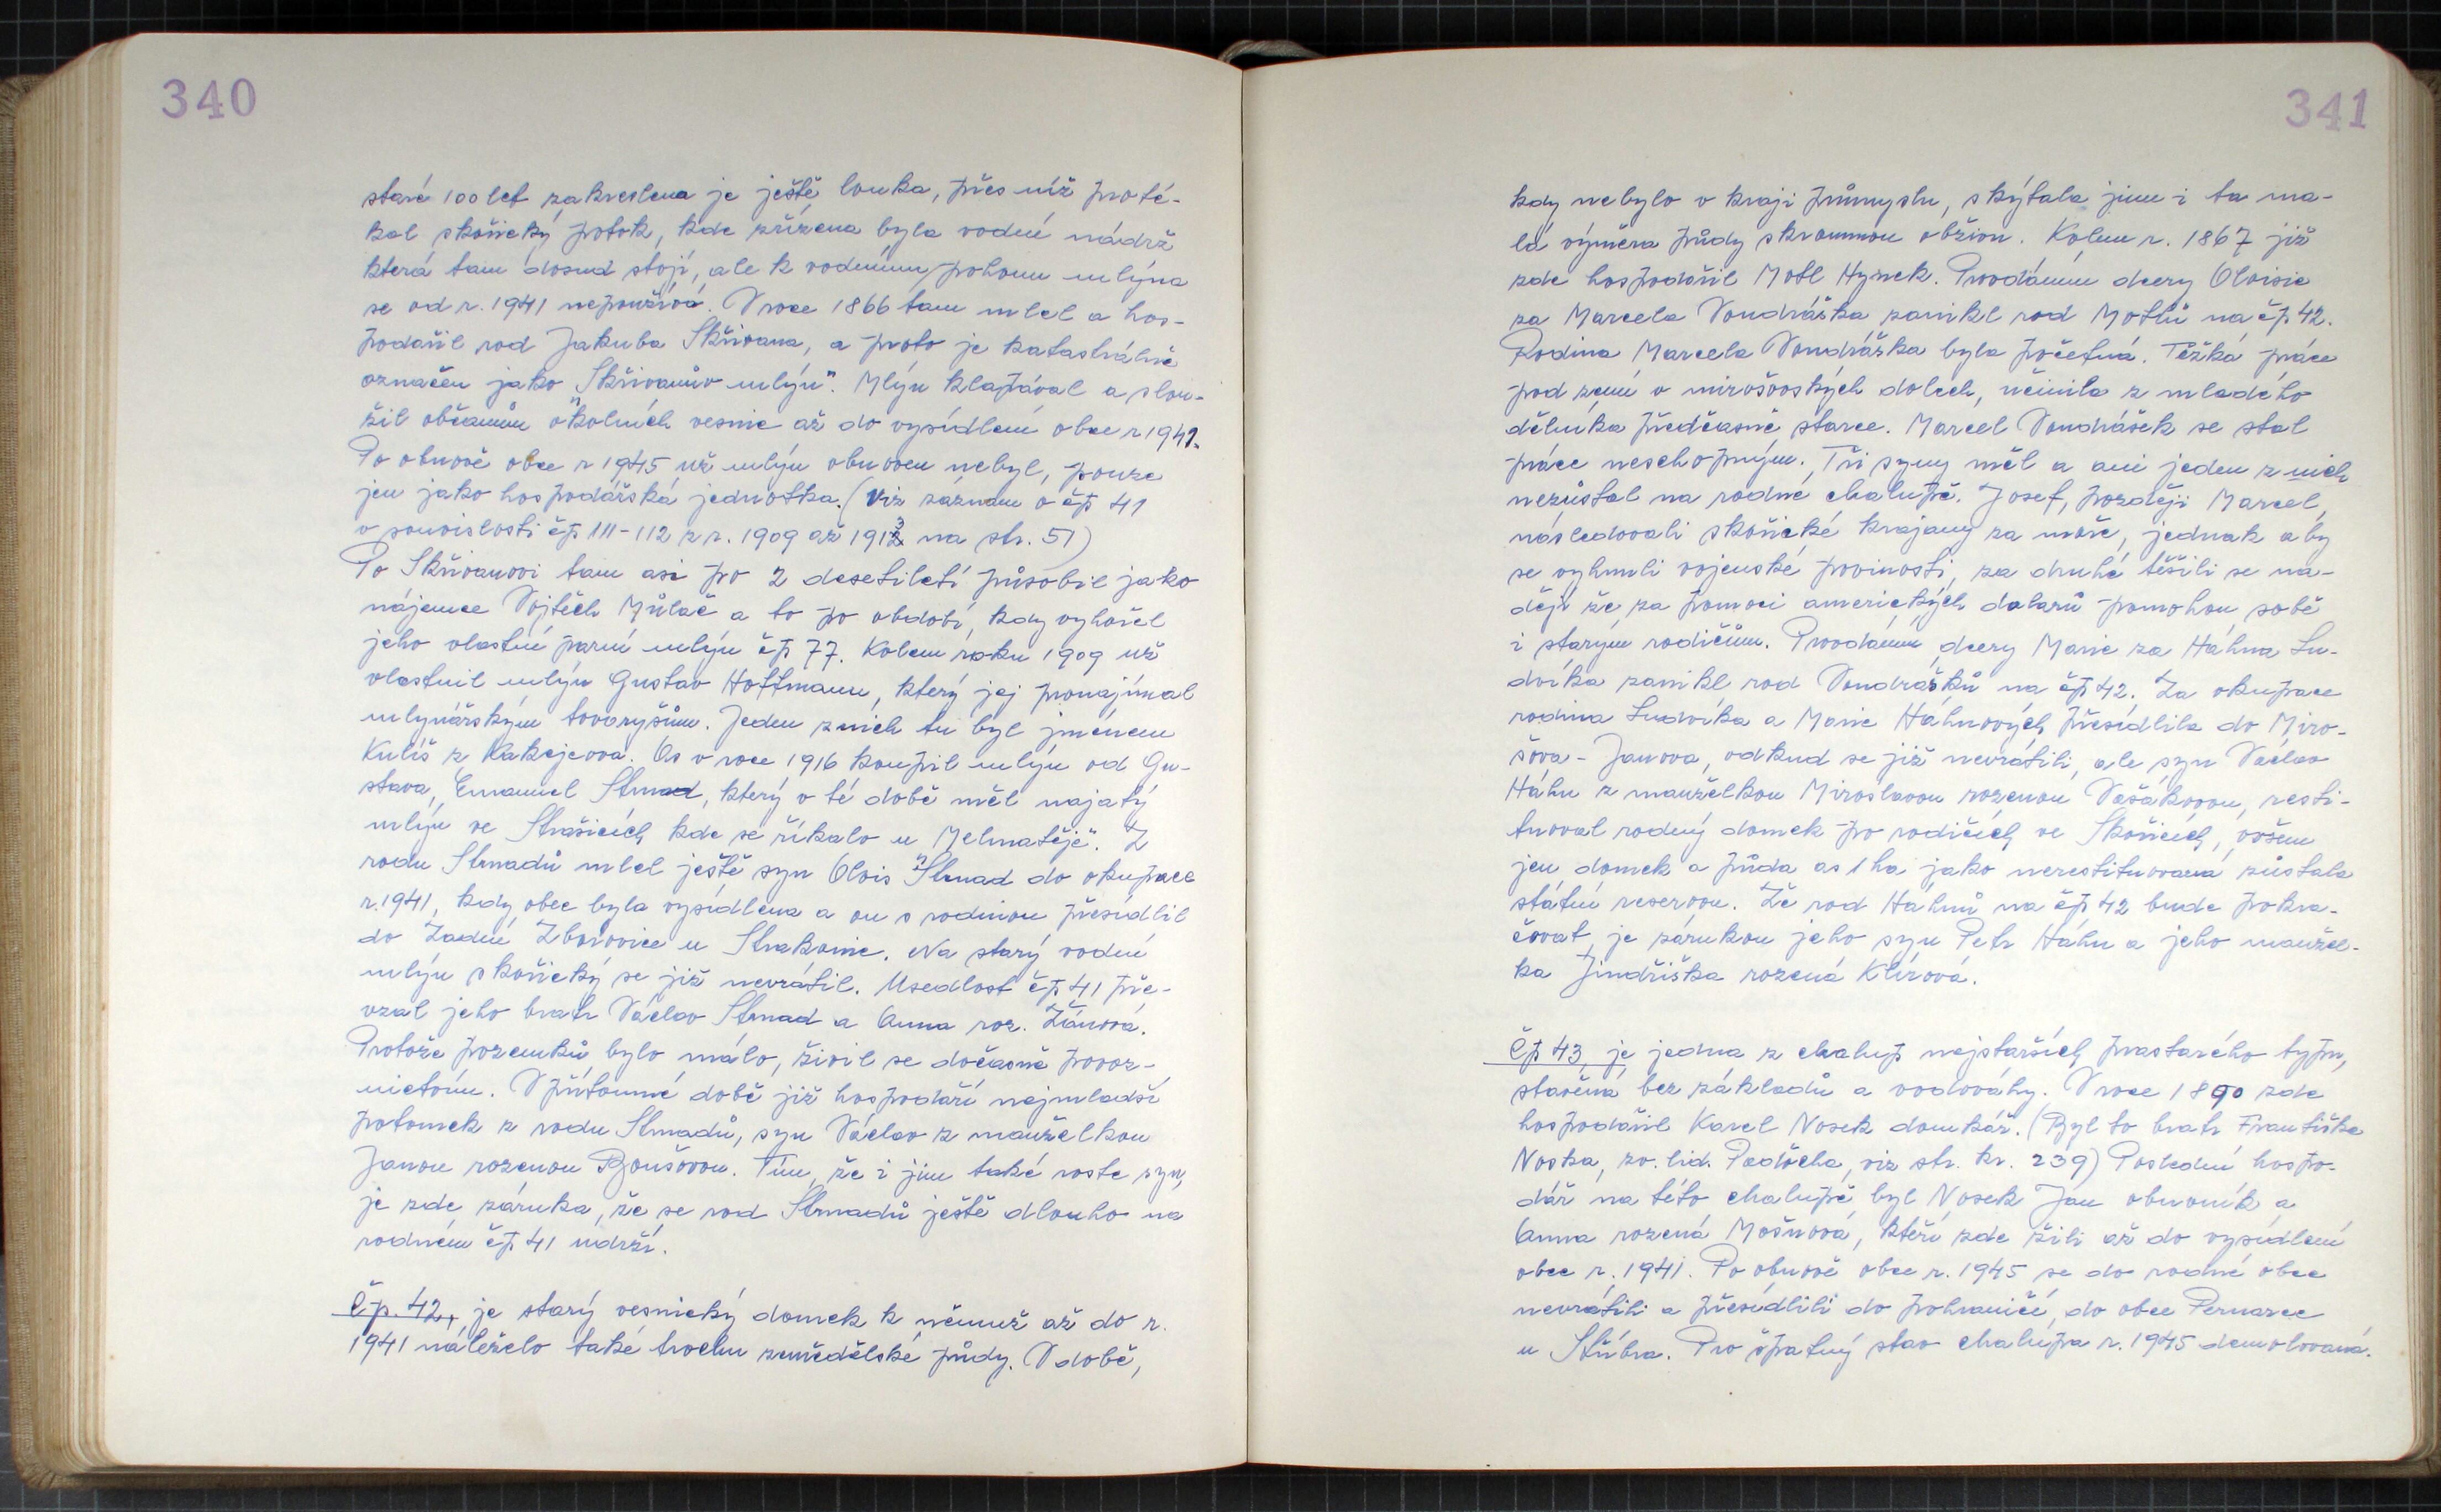 340
staré 100 let zakreslena je ještě louka, přes níž proté-
kal skořický potok, kde zřízena byla vodní nádrž
která tam dosud stojí, ale k vodnímu pohonu mlýna
se od r. 1941 nepoužívá. V roce 1866 tam mlel a hos-
podařil rod Jakuba Skřivana, a proto je katastrálně
označen jako „Skřivanův mlýn". Mlýn klapával a slou-
žil občanům okolních vesnic až do vysídlení obce r 1941.
Po obnově obce r 1945 už mlýn obnoven nebyl, pouze
jen jako hospodářská jednotka. (Viz záznam o čp 41
v souvislosti čp 111-112 z r. 1909 až 1913 na str. 51)
Po Skřivanovi tam asi po 2 desetiletí působil jako
nájemce Vojtěch Můlač a to po období, kdy vyhořel
jeho vlastní parní mlýn čp 77. Kolem roku 1909 už
vlastnil mlýn Gustav Hoffmann, který jej pronajímal
mlynářským tovaryšům. Jeden z nich tu byl jménem
Kuliš z Kakejcova. As v roce 1916 koupil mlýn od Gu-
stava, Emanuel Strnad, který v té době měl najatý
mlýn ve Strašicích, kde se říkalo „u Melmatěje". Z
rodu Strnadů mlel ještě syn Alois Strnad do okupace
r. 1941, kdy obec byla vysídlena a on s rodinou přesídlil
do Zadní Zborovice u Strakonic. Na starý vodní
mlýn skořický se již nevrátil. Usedlost čp 41 pře-
vzal jeho bratr Václav Strnad a Anna roz. Žánová.
Protože pozemků bylo málo, živil se dočasně povoz-
nictvím. V přítomné době již hospodaří nejmladší
potomek z rodu Strnadů, syn Václav z manželkou
Janou rozenou Bjoušovou. Tím, že i jim také roste syn,
je zde záruka, že se rod Strnadů ještě dlouho na
rodném čp 41 udrží.
Čp. 42, je starý vesnický domek k němuž až do r.
1941 náleželo také trochu zemědělské půdy. V době,
341
kdy nebylo v kraji průmyslu, skýtala jim i ta ma-
lá výměra půdy skromnou obživu. Kolem r. 1867 již
zde hospodařil Motl Hynek. Provdáním dcery Aloisie
za Marcela Vondráška zanikl rod Motlů na čp 42.
Rodina Marcela Vondráška byla početná. Těžká práce
pod zemí v mirošovských dolech, učinila z mladého
dělníka předčasně starce. Marcel Vondrášek se stal
práce neschopným. Tři syny měl a ani jeden z nich
nezůstal na rodné chalupě. Josef, později Marcel,
následovali skořické krajany za moře, jednak aby
se vyhnuli vojenské povinosti, za druhé těšili se na-
ději že za pomoci amerických dolarů pomohou sobě
i starým rodičům. Provdáním dcery Marie za Háhna Lu-
dvíka zanikl rod Vondrášků na čp 42. Za okupace
rodina Ludvíka a Marie Háhnových přesídlila do Miro-
šova - Janova, odkud se již nevrátili, ale syn Václav
Háhn z manželkou Miroslavou rozenou Vašákovou, resti-
tuoval rodný domek po rodičích ve Skořicích, ovšem
jen domek a půda as 1 ha jako nerestituovaná zůstala
státní reservou. Že rod Háhnů na čp 42 bude pokra-
čovat, je zárukou jeho syn Petr Háhn a jeho manžel-
ka Jindřiška rozená Klírová.
Čp 43, je jedna z chalup nejstarších prastarého typu,
stavěná bez základů a vodováhy. V roce 1890 zde
hospodařil Karel Nosek domkář. (Byl to bratr Františka
Noska, zv. lid. Padócha, viz str. kr. 239) Poslední hospo-
dář na této chalupě byl Nosek Jan obuvník a
Anna rozená Mošnová, kteří zde žili až do vysídlení
obce r. 1941. Po obnově obce r. 1945 se do rodné obce
nevrátili a přesídlili do pohraničí, do obce Pernarec
u Stříbra. Pro špatný stav chalupa r. 1945 demolovaná.